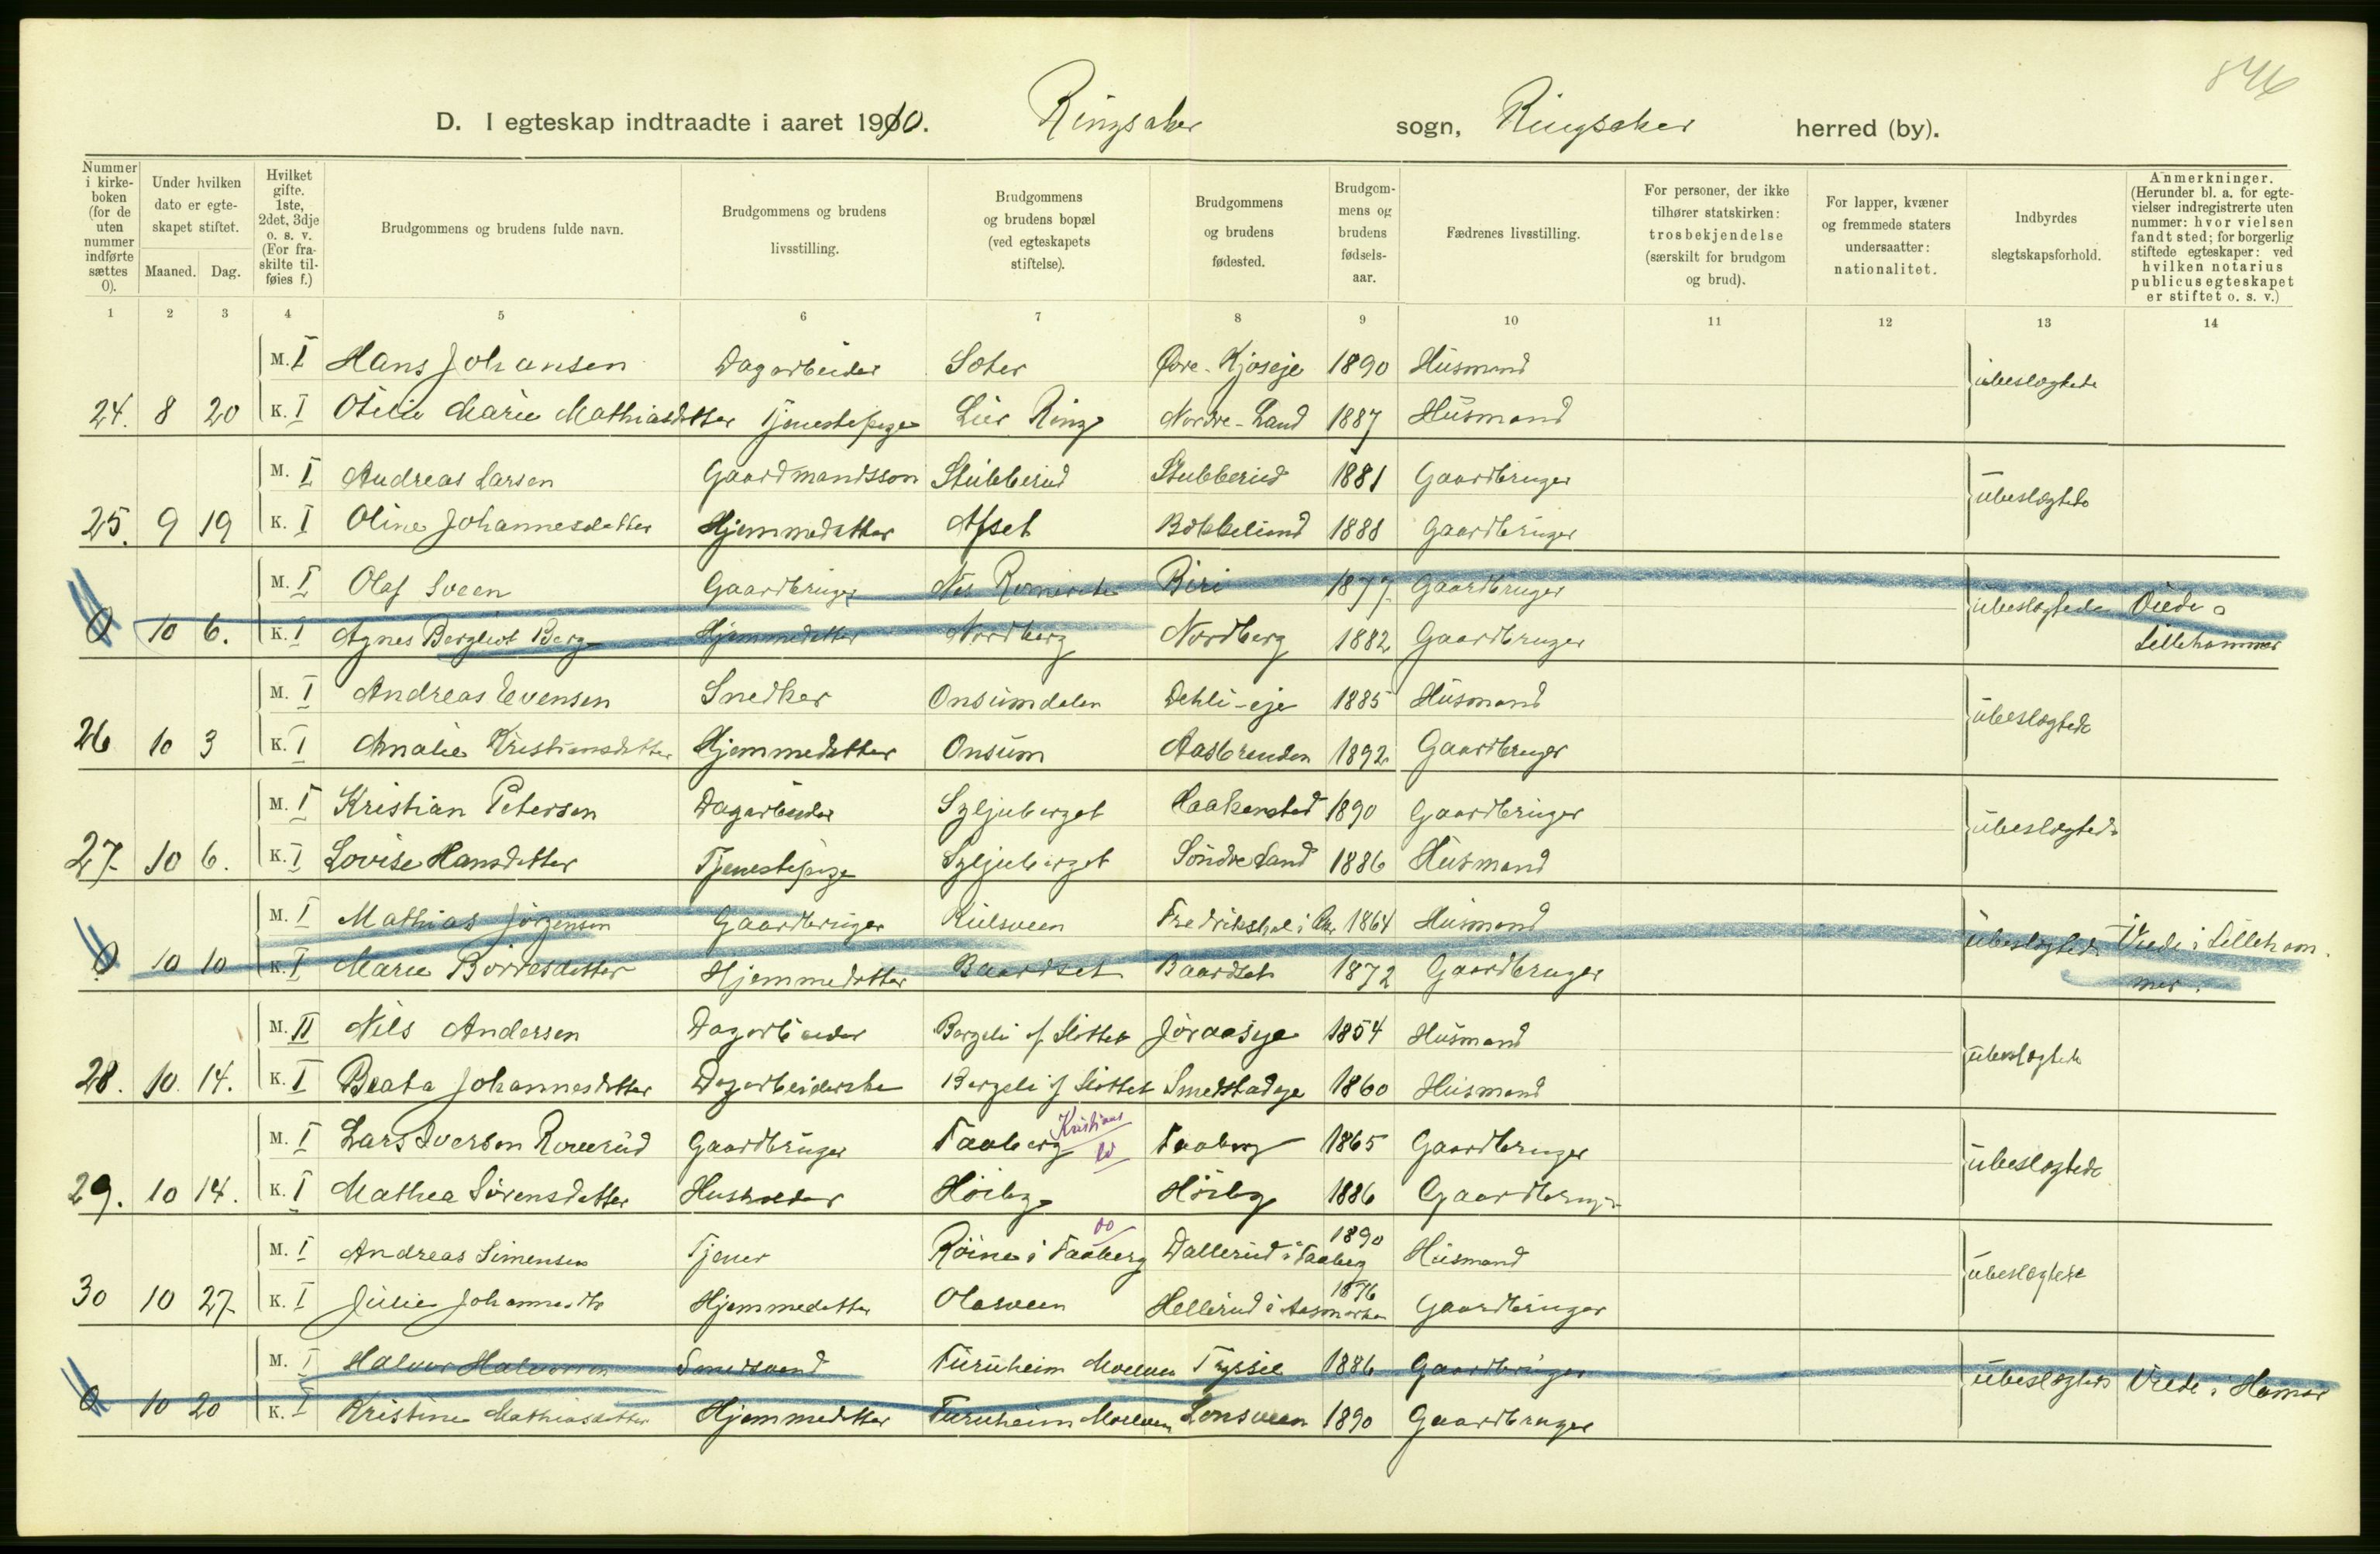 846
D. I egteskap indtraadte i aaret 1910. Ringsaker sogn, Ringsaker herred (by).
Nummer i kirke-boken (for de uten nummer indførte sættes 0).
Under hvilken dato er egte-skapet stiftet.
Maaned. Dag.
Hvilket gifte. 1ste, 2det, 3dje o. s. v. (For fra-skilte til-føies f.)
Brudgommens og brudens fulde navn.
Brudgommens og brudens livsstilling.
Brudgommens og brudens bopæl (ved egteskapets stiftelse).
Brudgommens og brudens fødested.
Brudgom-mens og brudens fødsels-aar.
Fædrenes livsstilling.
For personer, der ikke tilhører statskirken: trosbekjendelse (særskilt for brudgom og brud).
For lapper, kvæner og fremmede staters undersaatter: nationalitet.
Indbyrdes slegtskapsforhold.
Anmerkninger. (Herunder bl. a. for egte-vielser indregistrerte uten nummer: hvor vielsen fandt sted; for borgerlig stiftede egteskaper: ved hvilken notarius publicus egteskapet er stiftet o. s. v.)
1 2 3 4 5 6 7 8 9 10 11 12 13 14
M. I Hans Johansen Dagarbeider Sæter Øvre-Kjoseje 1890 Husmand ubeslægtede
24. 8 20 K. I Otilie Marie Mathiasdatter Tjenestepige Lier Ring Nordre-Land 1887 Husmand
M. I Andreas Larsen Gaardmandssøn Stubberud Stubberud 1881 Gaardbruger ubeslægtede
25. 9 19 K. I Oline Johannesdatter Hjemmedatter Afset Bökkelund 1888 Gaardbruger
M. I Olaf Sveen Gaardbruger Nes Biri 1877 Gaardbruger ubeslægtede Viede i
0 10 6. K. I Agnes Bergliot Berg Hjemmedatter Nordberg Nordberg 1882 Gaardbruger Lillehammer
M. I Andreas Evensen Snedker Onsumdalen Dehli-eje 1885 Husmand ubeslægtede
26 10 3 K. I Amalie Kristiansdatter Hjemmedatter Onsum Aasbrenden 1892 Gaardbruger
M. I Kristian Petersen Dagarbeider Syljuberget Haakenstad 1890 Gaardbruger ubeslægtede
27. 10 6. K. I Lovise Hansdatter Tjenestepige Syljuberget Söndre Land 1886 Husmand
M. I Mathias Jörgensen Gaardbruger Kulsveen Fredrikshal i 1864 Husmand ubeslægtede Viede i Lilleham-
0 10 10 K. I Marie Börresdatter Hjemmedatter Baardset Baardset 1872 Gaardbruger mer.
M. II Nils Andersen Dagarbeider Bergeli af Slottet 1854 Husmand ubeslægtede
28. 10. 14. K. I Beata Johannesdatter Dagarbeiderske Bergeli af Slottet Smedstadeje 1860 Husmand
M. I Lars Iversen Rouerud Gaardbruger Faaberg Kristians Faaberg 1865 Gaardbruger ubeslægtede
29. 10 14. K. I Mathea Sörensdatter Husholder Höiby Höiby 1886 Gaardbruger
M. I Andreas Simensen Tjener Röine i Faaberg Dallerud i Faaberg 1890 Husmand ubeslægtede
30 10 27. K. I Julie Johannesdtr Hjemmedatter Olasveen Hellerud i Aasmarken 1876 Gaardbruger
M. I Halvor Halvorsen Smedsvend Furuheim Moelven Trysil 1886 Gaardbruger ubeslægtede Viede i Hamar
0 10 20 K. I Kristine Mathiasdatter Hjemmedatter Furuheim Moelven Lonsveen 1890 Gaardbruger